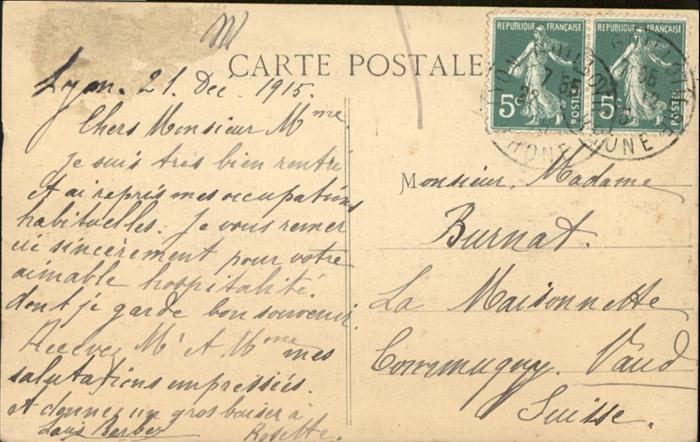 CARTE POSTALE
REPUBLIQUE FRANÇAISE
5c
POSTES
REPUBLIQUE FRANÇAISE
5c
POSTES
RHONE
RHONE
Lyon. 21. Déc 1915.
Chers Monsieur Mme.
Je suis très bien rentré
et ai repris mes occupations
habituelles. Je vous remer
cie sincèrement pour votre
aimable hospitalité.
dont je garde bon souvenir.
Recevez Mr et Mme mes
salutations empressées.
et donnez un gros baiser à
Louis Rosette.
Monsieur. Madame
Burnat.
La Maisonnette
Commugny. Vaud
Suisse.